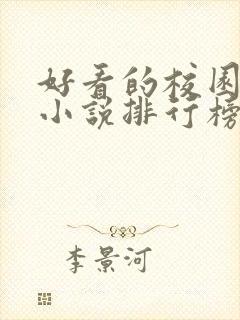 好看的校园
小说排行榜
李景河